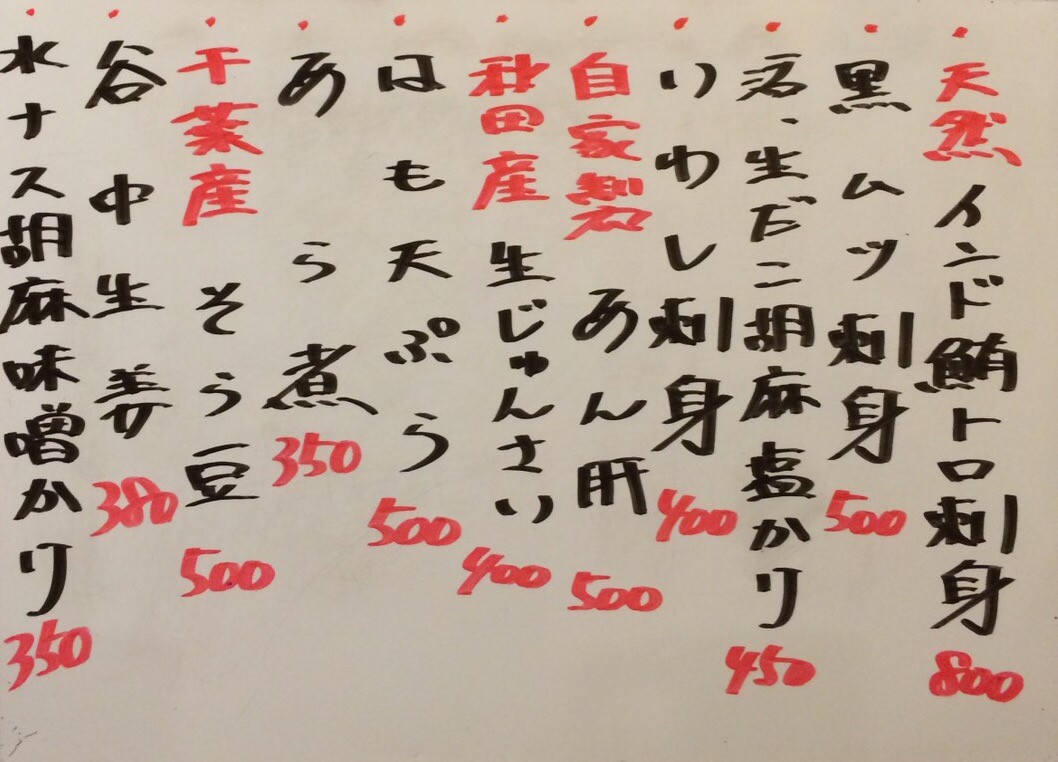 天然インド鮪トロ刺身 800
黒ムツ刺身 500
活、生だこ胡麻塩かり 450
いわし刺身 400
自家製あん肝 500
秋田産生じゅんさい 400
はも天ぷら 500
あら煮 350
千葉産そら豆 500
谷中生姜 380
水ナス胡麻味噌かり 350